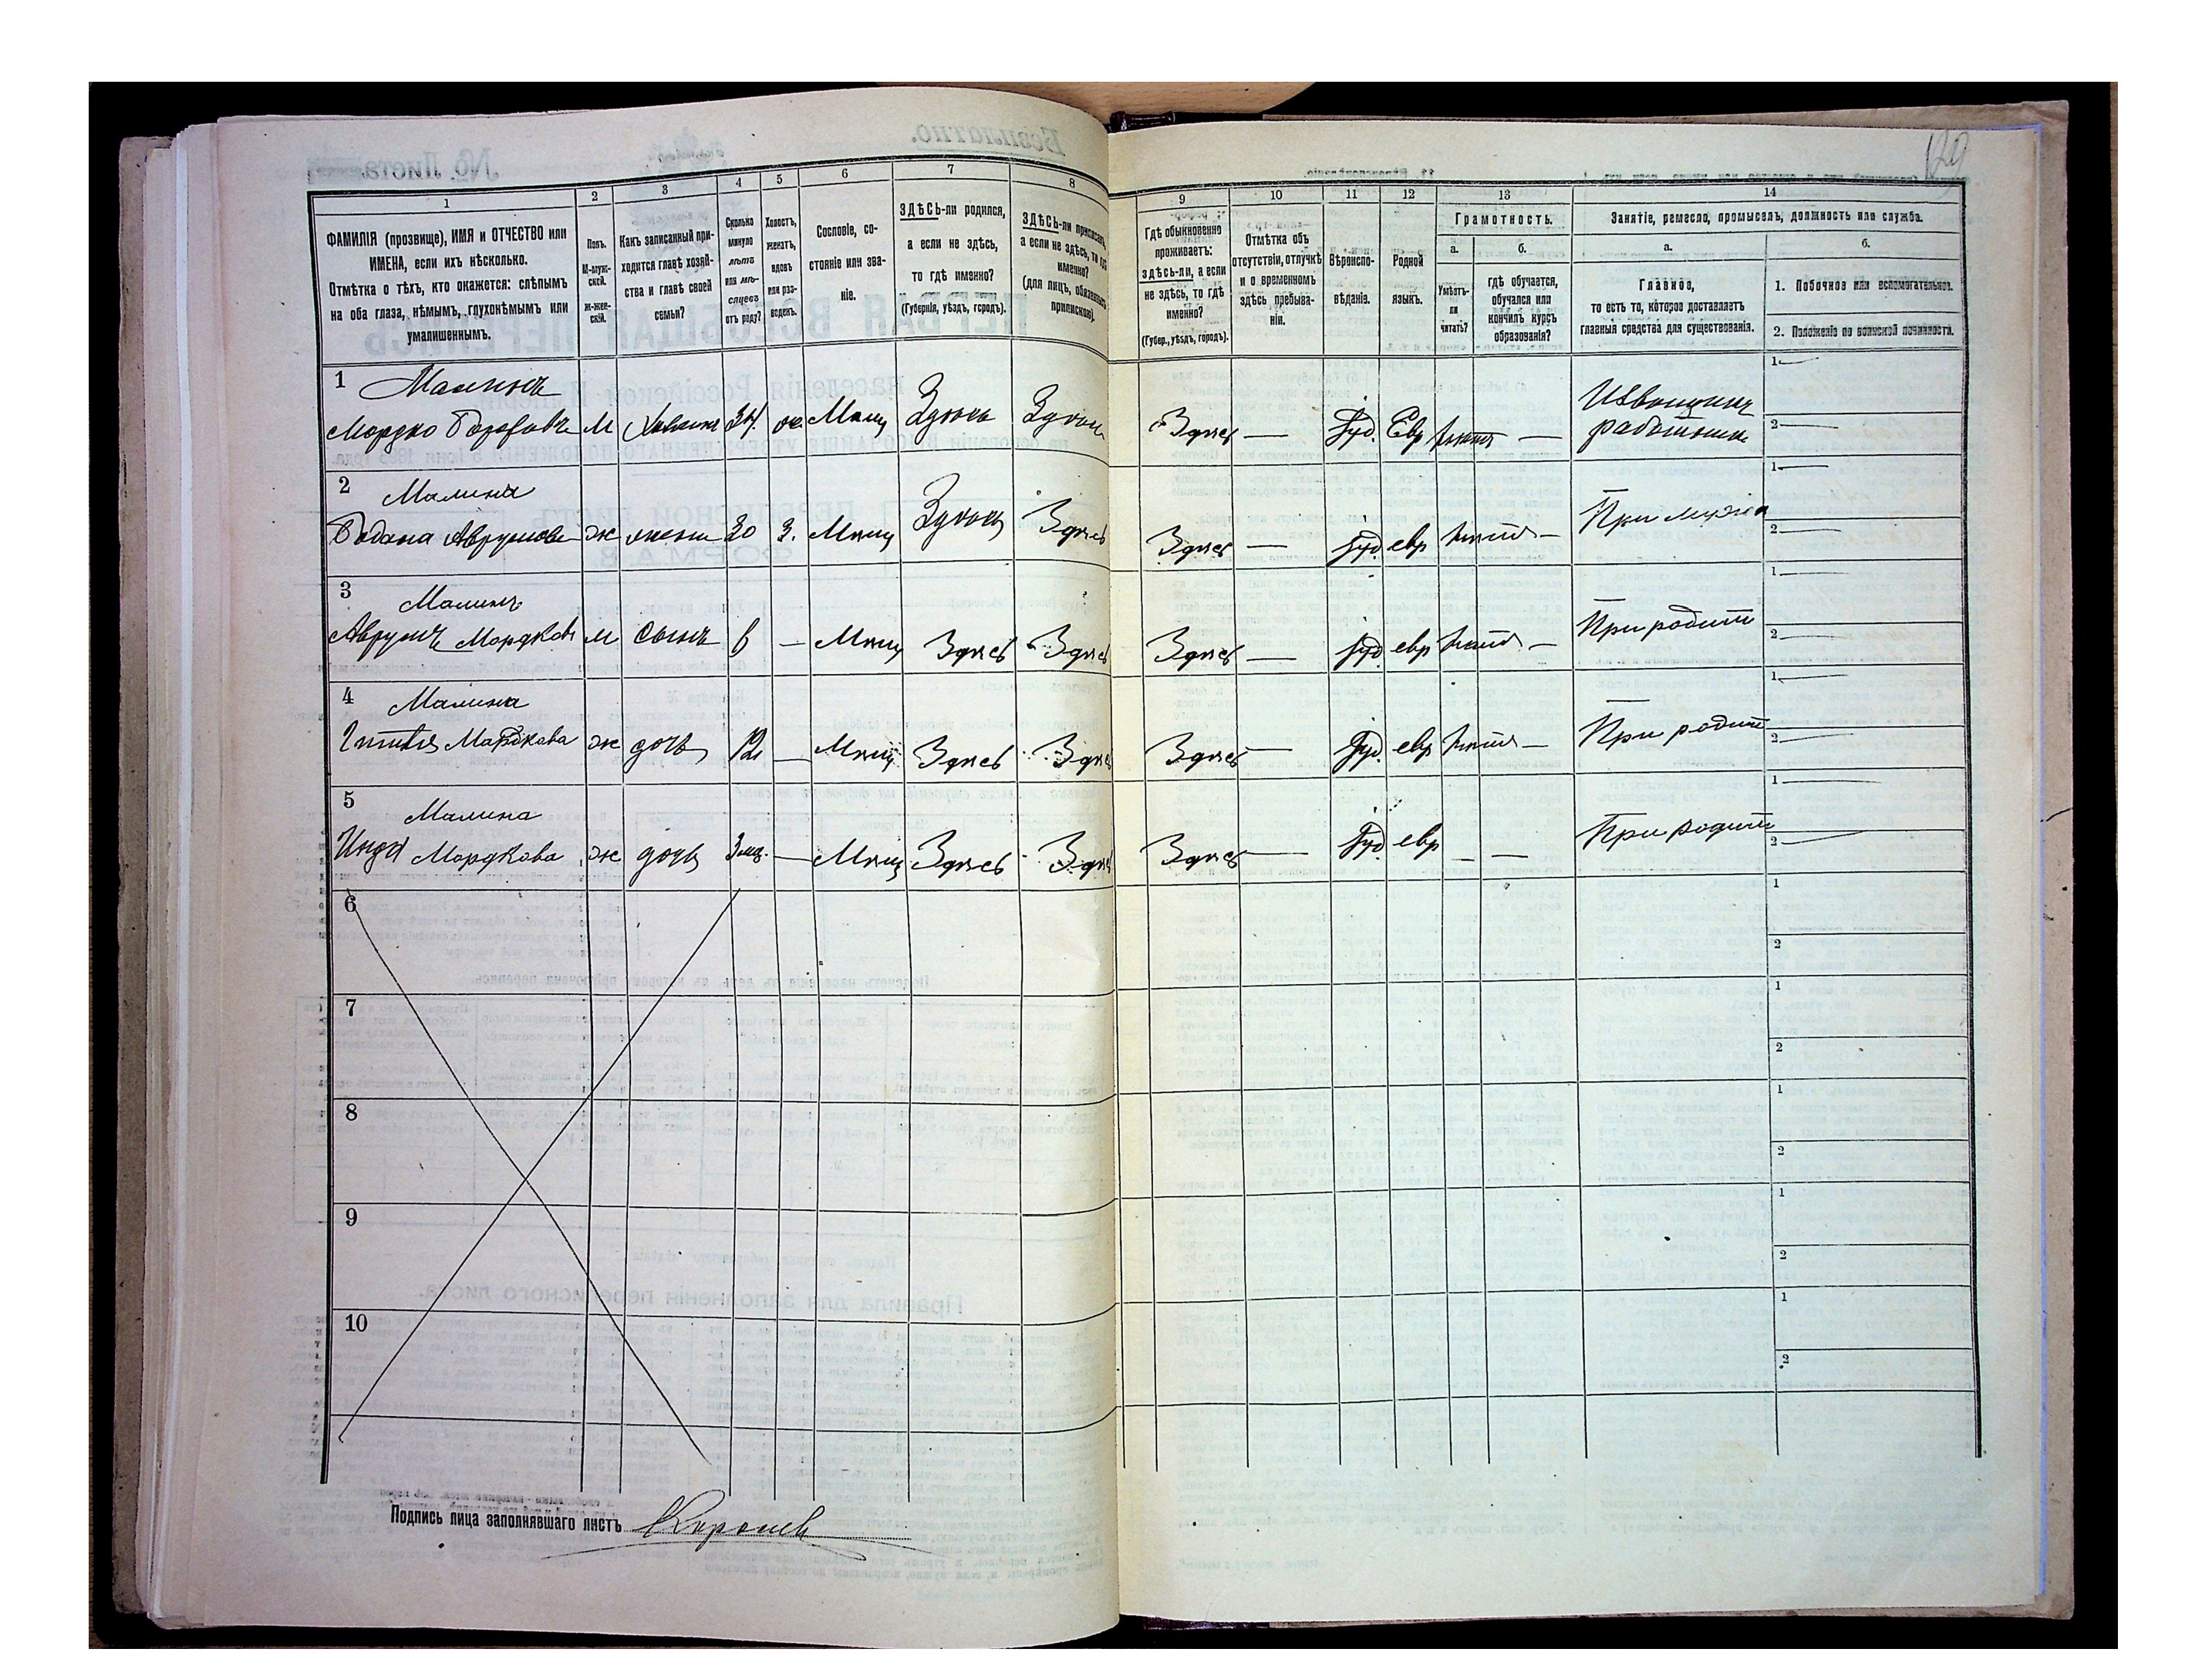 129
1
2
3
4
5
6
7
8
9
10
11
12
13
14
ФАМИЛІЯ (прозвище), ИМЯ и ОТЧЕСТВО или
ИМЕНА, если ихъ нѣсколько.
Отмѣтка о тѣхъ, кто окажется: слѣпымъ
на оба глаза, нѣмымъ, глухонѣмымъ или
умалишеннымъ.
Полъ.
М-муж-
ской.
ж-жен-
скій.
Какъ записанный при-
ходится главѣ хозяй-
ства и главѣ своей
семьи?
Сколько
минуло
лѣтъ
или мѣ-
сяцевъ
отъ роду?
Холостъ,
женатъ,
вдовъ
или раз-
веденъ.
Сословіе, со-
стояніе или зва-
ніе.
ЗДѢСЬ-ли родился,
а если не здѣсь,
то гдѣ именно?
(Губернія, уѣздъ, городъ).
ЗДѢСЬ-ли приписанъ,
а если не здѣсь, то гдѣ
именно?
(для лицъ, обязанныхъ
припискою).
Гдѣ обыкновенно
проживаетъ:
здѣсь-ли, а если
не здѣсь, то гдѣ
именно?
(Губер., уѣздъ, городъ).
Отмѣтка объ
отсутствіи, отлучкѣ
и о временномъ
здѣсь пребыва-
ніи.
Вѣроиспо-
вѣданіе.
Родной
языкъ.
Грамотность.
а.
б.
Умѣетъ-
ли
читать?
гдѣ обучается,
обучался или
кончилъ курсъ
образованія?
Занятіе, ремесло, промыселъ, должность или служба.
а.
б.
Главное,
то есть то, которое доставляетъ
главныя средства для существованія.
1. Побочное или вспомогательное.
2. Положеніе по воинской повинности.
1 Малинъ
Мордко М Хозяинъ 34. ж Мѣщ Здѣсь Здѣсь Здѣсь — Іуд. Евр — Извощикъ
2 Малина
Аврумова ж жена 30 З. Мѣщ Здѣсь Здѣсь Здѣсь — Іуд. евр — При мужѣ
3 Малинъ
Аврумъ Мордков м Сынъ — Мѣщ Здѣсь Здѣсь Здѣсь — Іуд евр — При родит
4 Малина
Мордкова ж дочь 12 — Мѣщ Здѣсь Здѣсь Здѣсь — Іуд. евр — При родит
5 Малина
Мордкова ж дочь 3 мѣс. — Мѣщ Здѣсь Здѣсь Здѣсь — Іуд. евр — — При родит
6
7
8
9
10
Подпись лица заполнявшаго листъ